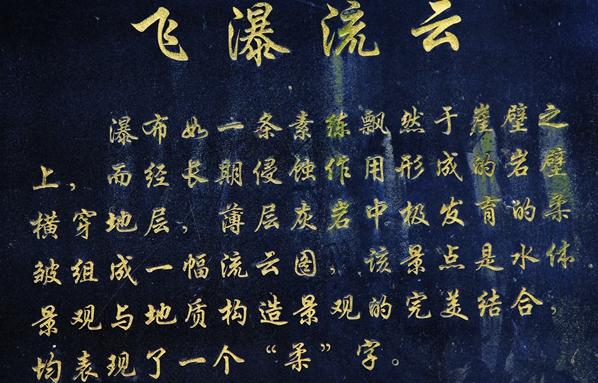 飞瀑流云
瀑布如一条素练飘然于崖壁之
上，而经长期侵蚀作用形成的岩壁
横穿地层，薄层灰岩中极发育的柔
皱组成一幅流云图，该景点是水体
景观与地质构造景观的完美结合，
均表现了一个“柔”字。